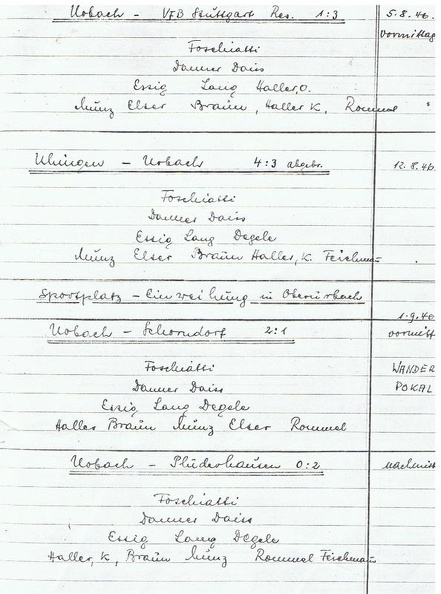 Urbach - VfB Stuttgart Res. 1:3 5.8.46.
vormittag
Foschiatti
Danner Daiss
Essig Lang Haller, O.
Münz Elser Braun, Haller K, Rommel "
Uhingen - Urbach 4:3 abgebr. 12.8.46.
Foschiatti
Danner Daiss
Essig Lang Degele
Münz Elser Braun Haller, K. Feichmann
Sportplatz - Einweihung in Oberurbach
1.9.46
Urbach - Schorndorf 2:1 vormitt
Foschiatti WANDER
Danner Daiss POKAL
Essig Lang Degele
Haller Braun Münz Elser Rommel
Urbach - Plüderhausen 0:2 nachmitt
Foschiatti
Danner Daiss
Essig Lang Degele
Haller, K, Braun Münz Rommel Feichmann